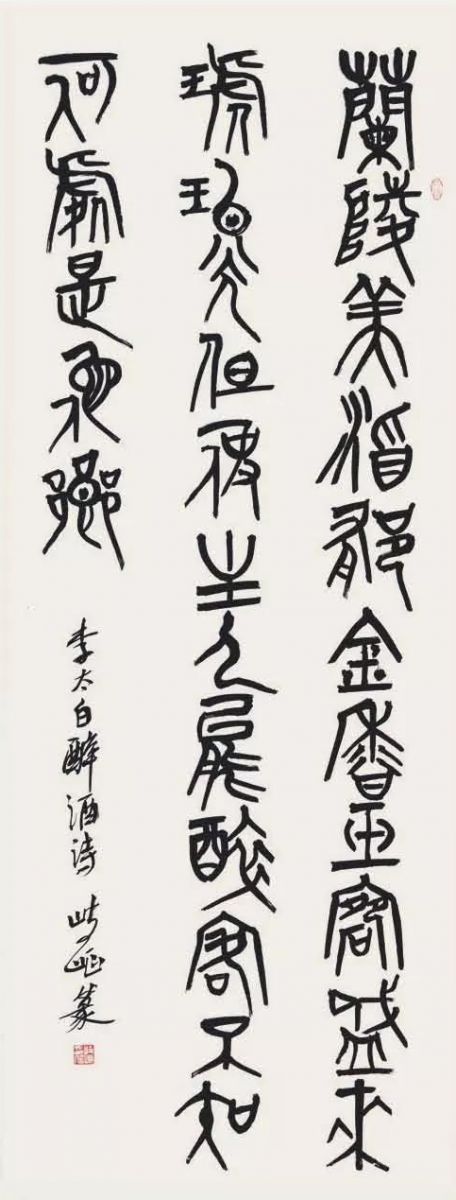 蘭陵美酒郁金香玉碗盛來
琥珀光但使主人能醉客不知
何處是他鄉
李太白醉酒诗 篆